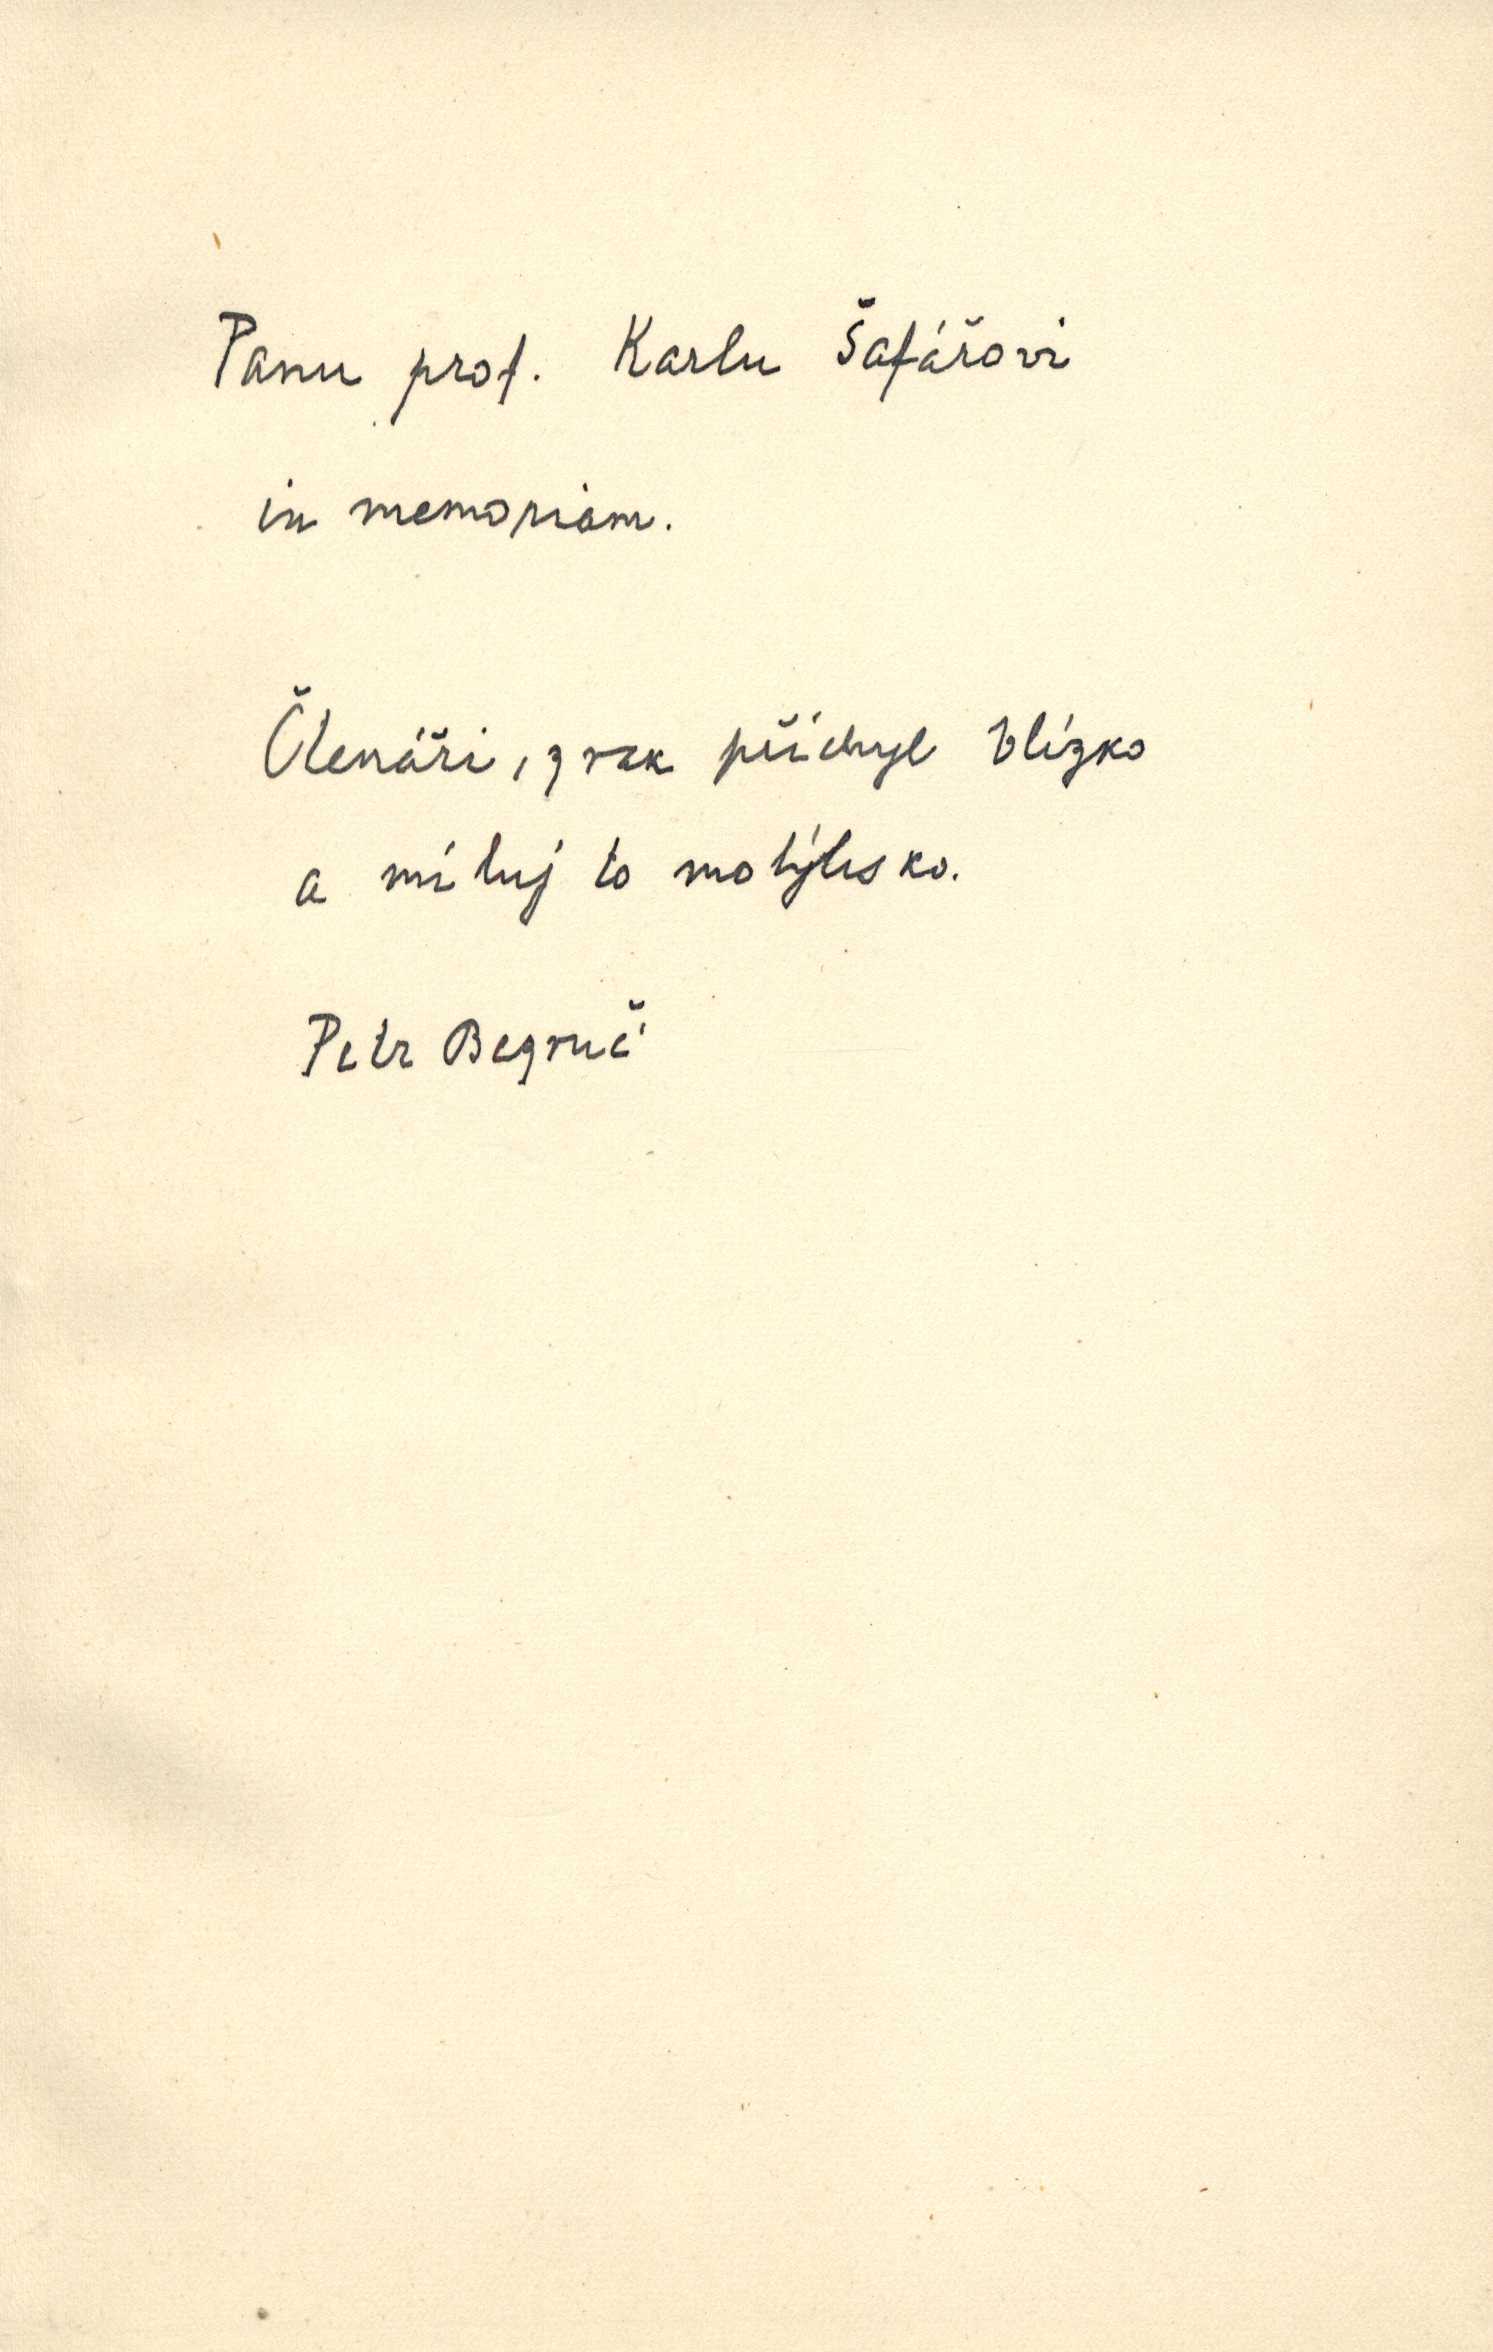 Panu prof. Karlu Šafářovi
in memoriam.
Čtenáři, zrak přichyl blízko
a miluj to motýlisko.
Petr Bezruč